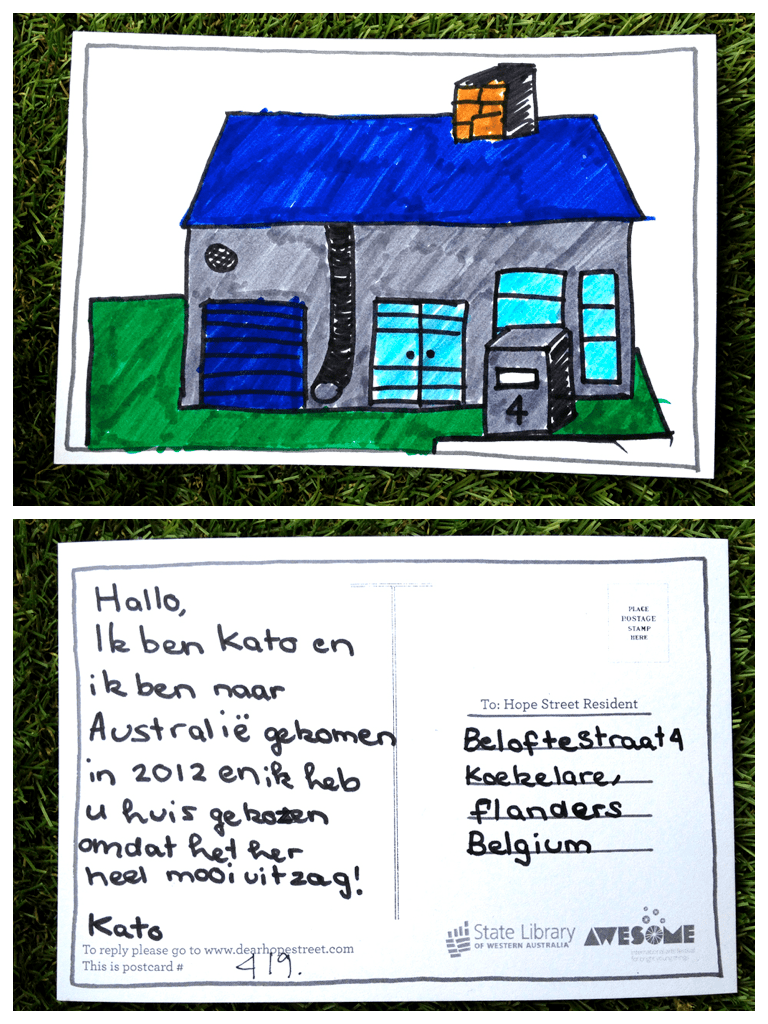 4
Hallo,
Ik ben Kato en
ik ben naar
Australië gekomen
in 2012 en ik heb
u huis gekozen
omdat het her
heel mooi uitzag!
Kato
To reply please go to www.dearhopestreet.com
This is postcard # 419.
PLACE
POSTAGE
STAMP
HERE
To: Hope Street Resident
Beloftestraat 4
Koekelare,
flanders
Belgium
State Library
OF WESTERN AUSTRALIA
AWESOME